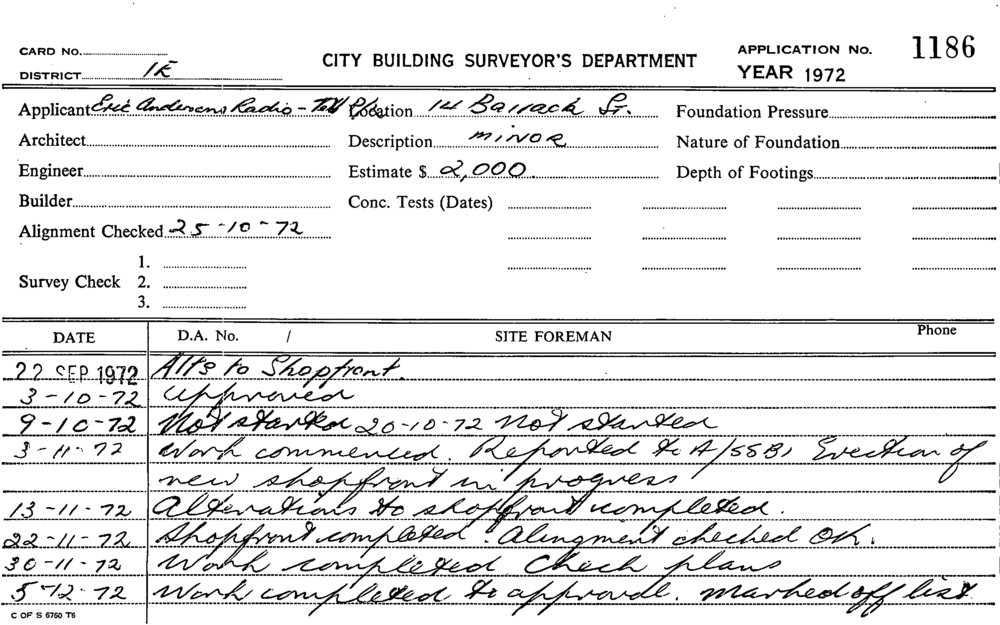 CARD No.
DISTRICT 1E
CITY BUILDING SURVEYOR'S DEPARTMENT
APPLICATION No. 1186
YEAR 1972
Applicant Eric Andersons Radio - Location 14 Barrack St. Foundation Pressure
Architect Description MINOR Nature of Foundation
Engineer Estimate $ 2,000 Depth of Footings
Builder Conc. Tests (Dates)
Alignment Checked 25-10-72
1.
Survey Check 2.
3.
DATE D.A. No. / SITE FOREMAN Phone
22 SEP 1972 Alts to Shopfront.
3-10-72 Approved
9-10-72 Not started 20-10-72 Not started
3-11-72 Work commenced. Reported to A/SSB, Erection of
new shopfront in progress
13-11-72 Alterations to shopfront completed.
22-11-72 Shopfront completed. Alingment checked OK.
30-11-72 Work completed Check plans
5-12-72 Work completed to approval. Marked off list
C OF S 6760 T6